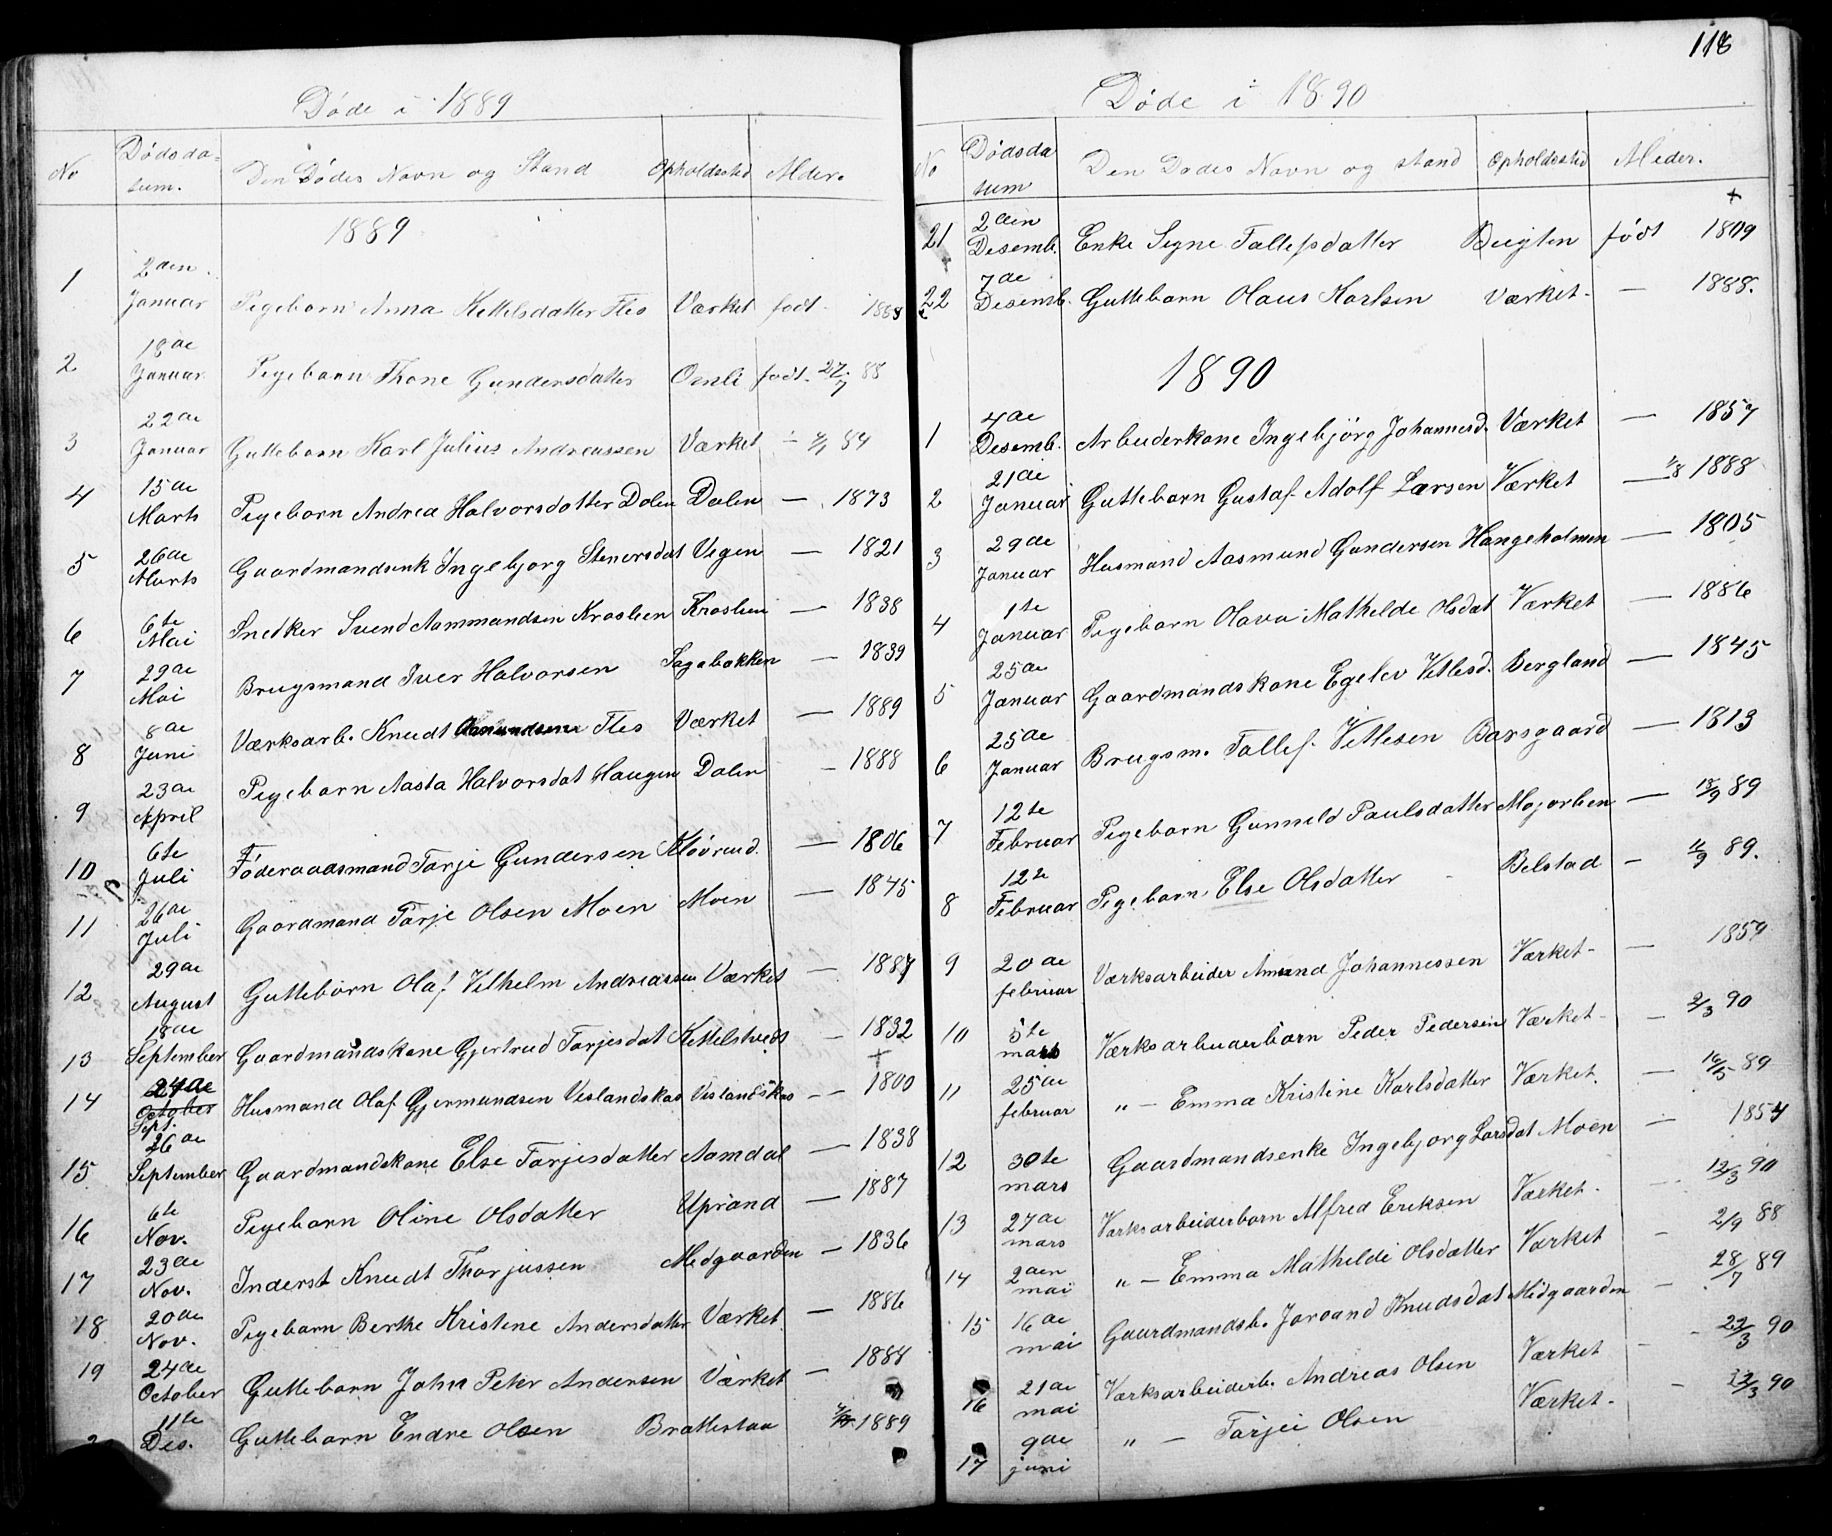 Døde i 1889
No Dødsda- tum. Den Dødes Navn og Stand Opholdssted Alder.
1889
1 2den Januar Pigebarn Anna Kettelsdatter Fles Værket født 1888
2 18de Januar Pigebarn Thone Gundersdatter Oenli født 27/7 88
3 22de Januar Guttebarn Karl Julius Andreassen Værket — 84
4 15de Marts Pigebarn Andrea Halvorsdatter Dalen Dalen — 1873
5 26de Marts Gaardmandsenk Ingebjorg Stenersdat Vegen — 1821
6 6te Mai Snedker Svend Aammundsen Kroslien Kroslien — 1838
7 29de Mai Brugsmand Iver Halvorsen Sagebakken — 1839
8 8de Juni Værksarb. Knudt Fles Værket — 1889
9 23de April Pigebarn Aasta Halvorsdat Haugen Dalen — 1888
10 6te Juli Føderaadsmand Tarje Gundersen Kløvrud. — 1806
11 26de Juli Gaardmand Tarje Olsen Moen Moen — 1845
12 29de August Guttebørn Olaf Vilhelm Andreassen Værket — 1887
13 18de September Gaardmandskone Gjertrud Tarjesdat Kettelstvedt — 1832
14 24de October Sept. Husmand Olaf Gjermundsen Veslandskas Veslandskas — 1800 +
15 26de September Gaardmandskone Else Tarjesdatter Aamdal — 1838
16 6te Nov. Pigebarn Oline Olsdatter Uprand — 1887
17 23de Nov. Inderst Knudt Thorjussen Medgaarden — 1836
18 20de Nov. Pigebarn Berthe Kristene Andersdatter Værket — 1886
19 24de October Guttebarn John Peter Andersen Værket — 1888
2 11te Des. Guttebarn Endre Olsen Brattestaa 1889
118
Døde i 1890
No Dødsda tum Den Dødes Navn og stand Opholdssted Alder.
21 2den Desemb. Enke Signe Tallefsdatter Bugten født 1809 +
22 7de Desemb. Guttebarn Olaus Karlsen Værket — 1888.
1890
1 4de Desemb. Arbeiderkone Ingebjörg Johannesd. Værket — 1857
2 21de Januar Guttebarn Gustaf Adolf Larsen Værket — 1/8 1888
3 29de Januar Husmand Aasmund Gundersen Hangeholmen — 1805
4 1te Januar Pigebarn Olava Mathelde Olsdat Værket — 1886
5 25de Januar Gaardmandskone Egelev Vetlesd. Bergland — 1845
6 25de Januar Brugsm. Tallef Vetlesen Barsgaard — 1813
7 12te Februar Pigebarn Gunneld Paulsdatter Majorlien — 18/9 89
8 12te Februar Pigebarn Else Olsdatter Belstad — 11/9 89.
9 20de februar Værksarbeider Amund Johannessen Værket — 1859
10 5te mars Værksarbeiderbarn Peder Pedersen Værket — 2/3 90
11 25de februar " — Emma Kristine Karlsdatter Værket. — 16/5 89
12 30te mars Gaardmandsenke Ingebjorg Larsdat Moen — 1854
13 27de mars Værksarbeiderbarn Alfred Eriksen Værket. — 12/3 90
14 2den mai " — Emma Mathilde Olsdatter Værket — 2/9 88
15 16de mai Gaardmandsb. Joraand Knudsdat Midgaarden — 28/7 89
16 21de mai Værksarbeiderb. Andreas Olsen Værket — 22/3 90
17 9de juni " — Tarjei Olsen Værket. — 22/3 90